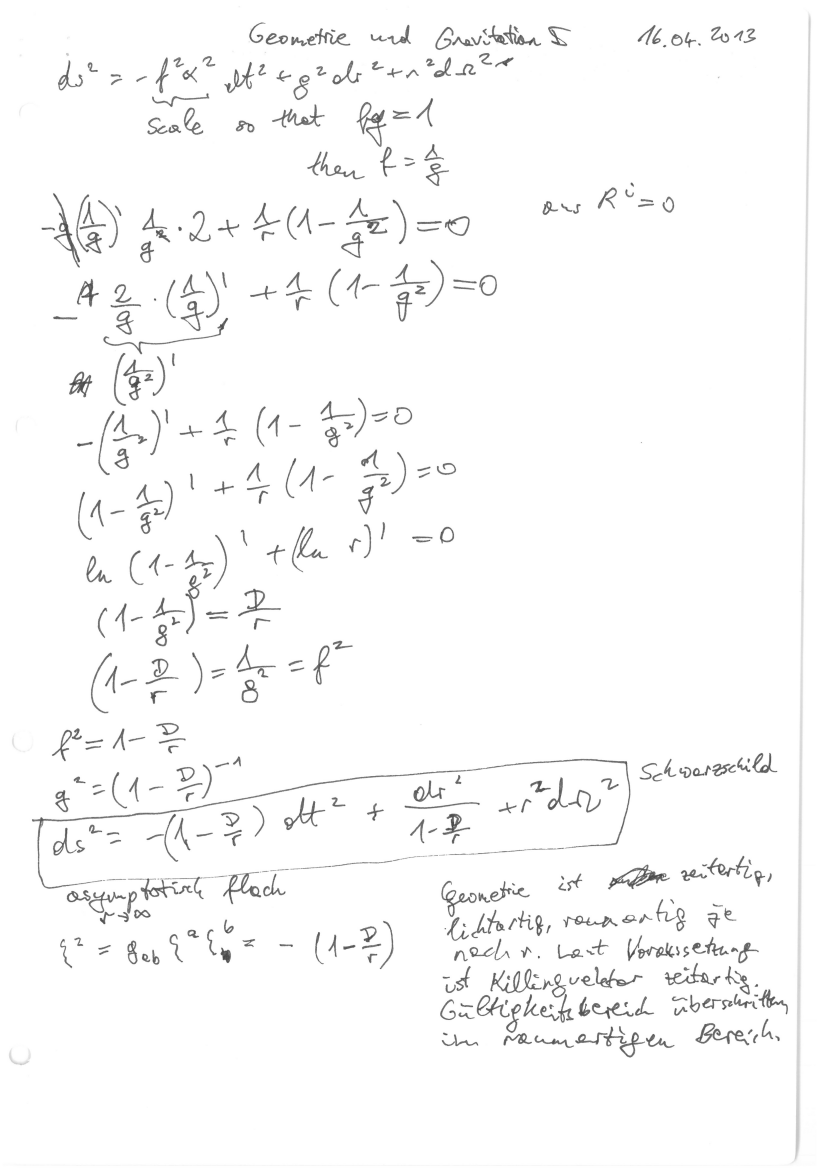 Geometrie und Gravitation I 16.04.2013
ds² = -f²α² dt² + g² dr² + r² dΩ²
scale so that fg = 1
then f = 1/g
-g(1/g)' 1/g² · 2 + 1/r (1 - 1/g²) = 0 aus R^i = 0
- 2/g · (1/g)' + 1/r (1 - 1/g²) = 0
(1/g²)'
-(1/g²)' + 1/r (1 - 1/g²) = 0
(1 - 1/g²)' + 1/r (1 - 1/g²) = 0
ln (1 - 1/g²)' + (ln r)' = 0
(1 - 1/g²) = D/r
(1 - D/r) = 1/g² = f²
f² = 1 - D/r
g² = (1 - D/r)⁻¹
ds² = -(1 - D/r) dt² + dr²/(1 - D/r) + r² dΩ² Schwarzschild
asymptotisch flach
r→∞
ξ² = g_ab ξ^a ξ^b = - (1 - D/r)
Geometrie ist zeitartig,
lichtartig, raumartig je
nach r. Laut Vorakssetzung
ist Killingvektor zeitartig.
Gültigkeitsbereich überschritten
im raumartigen Bereich.